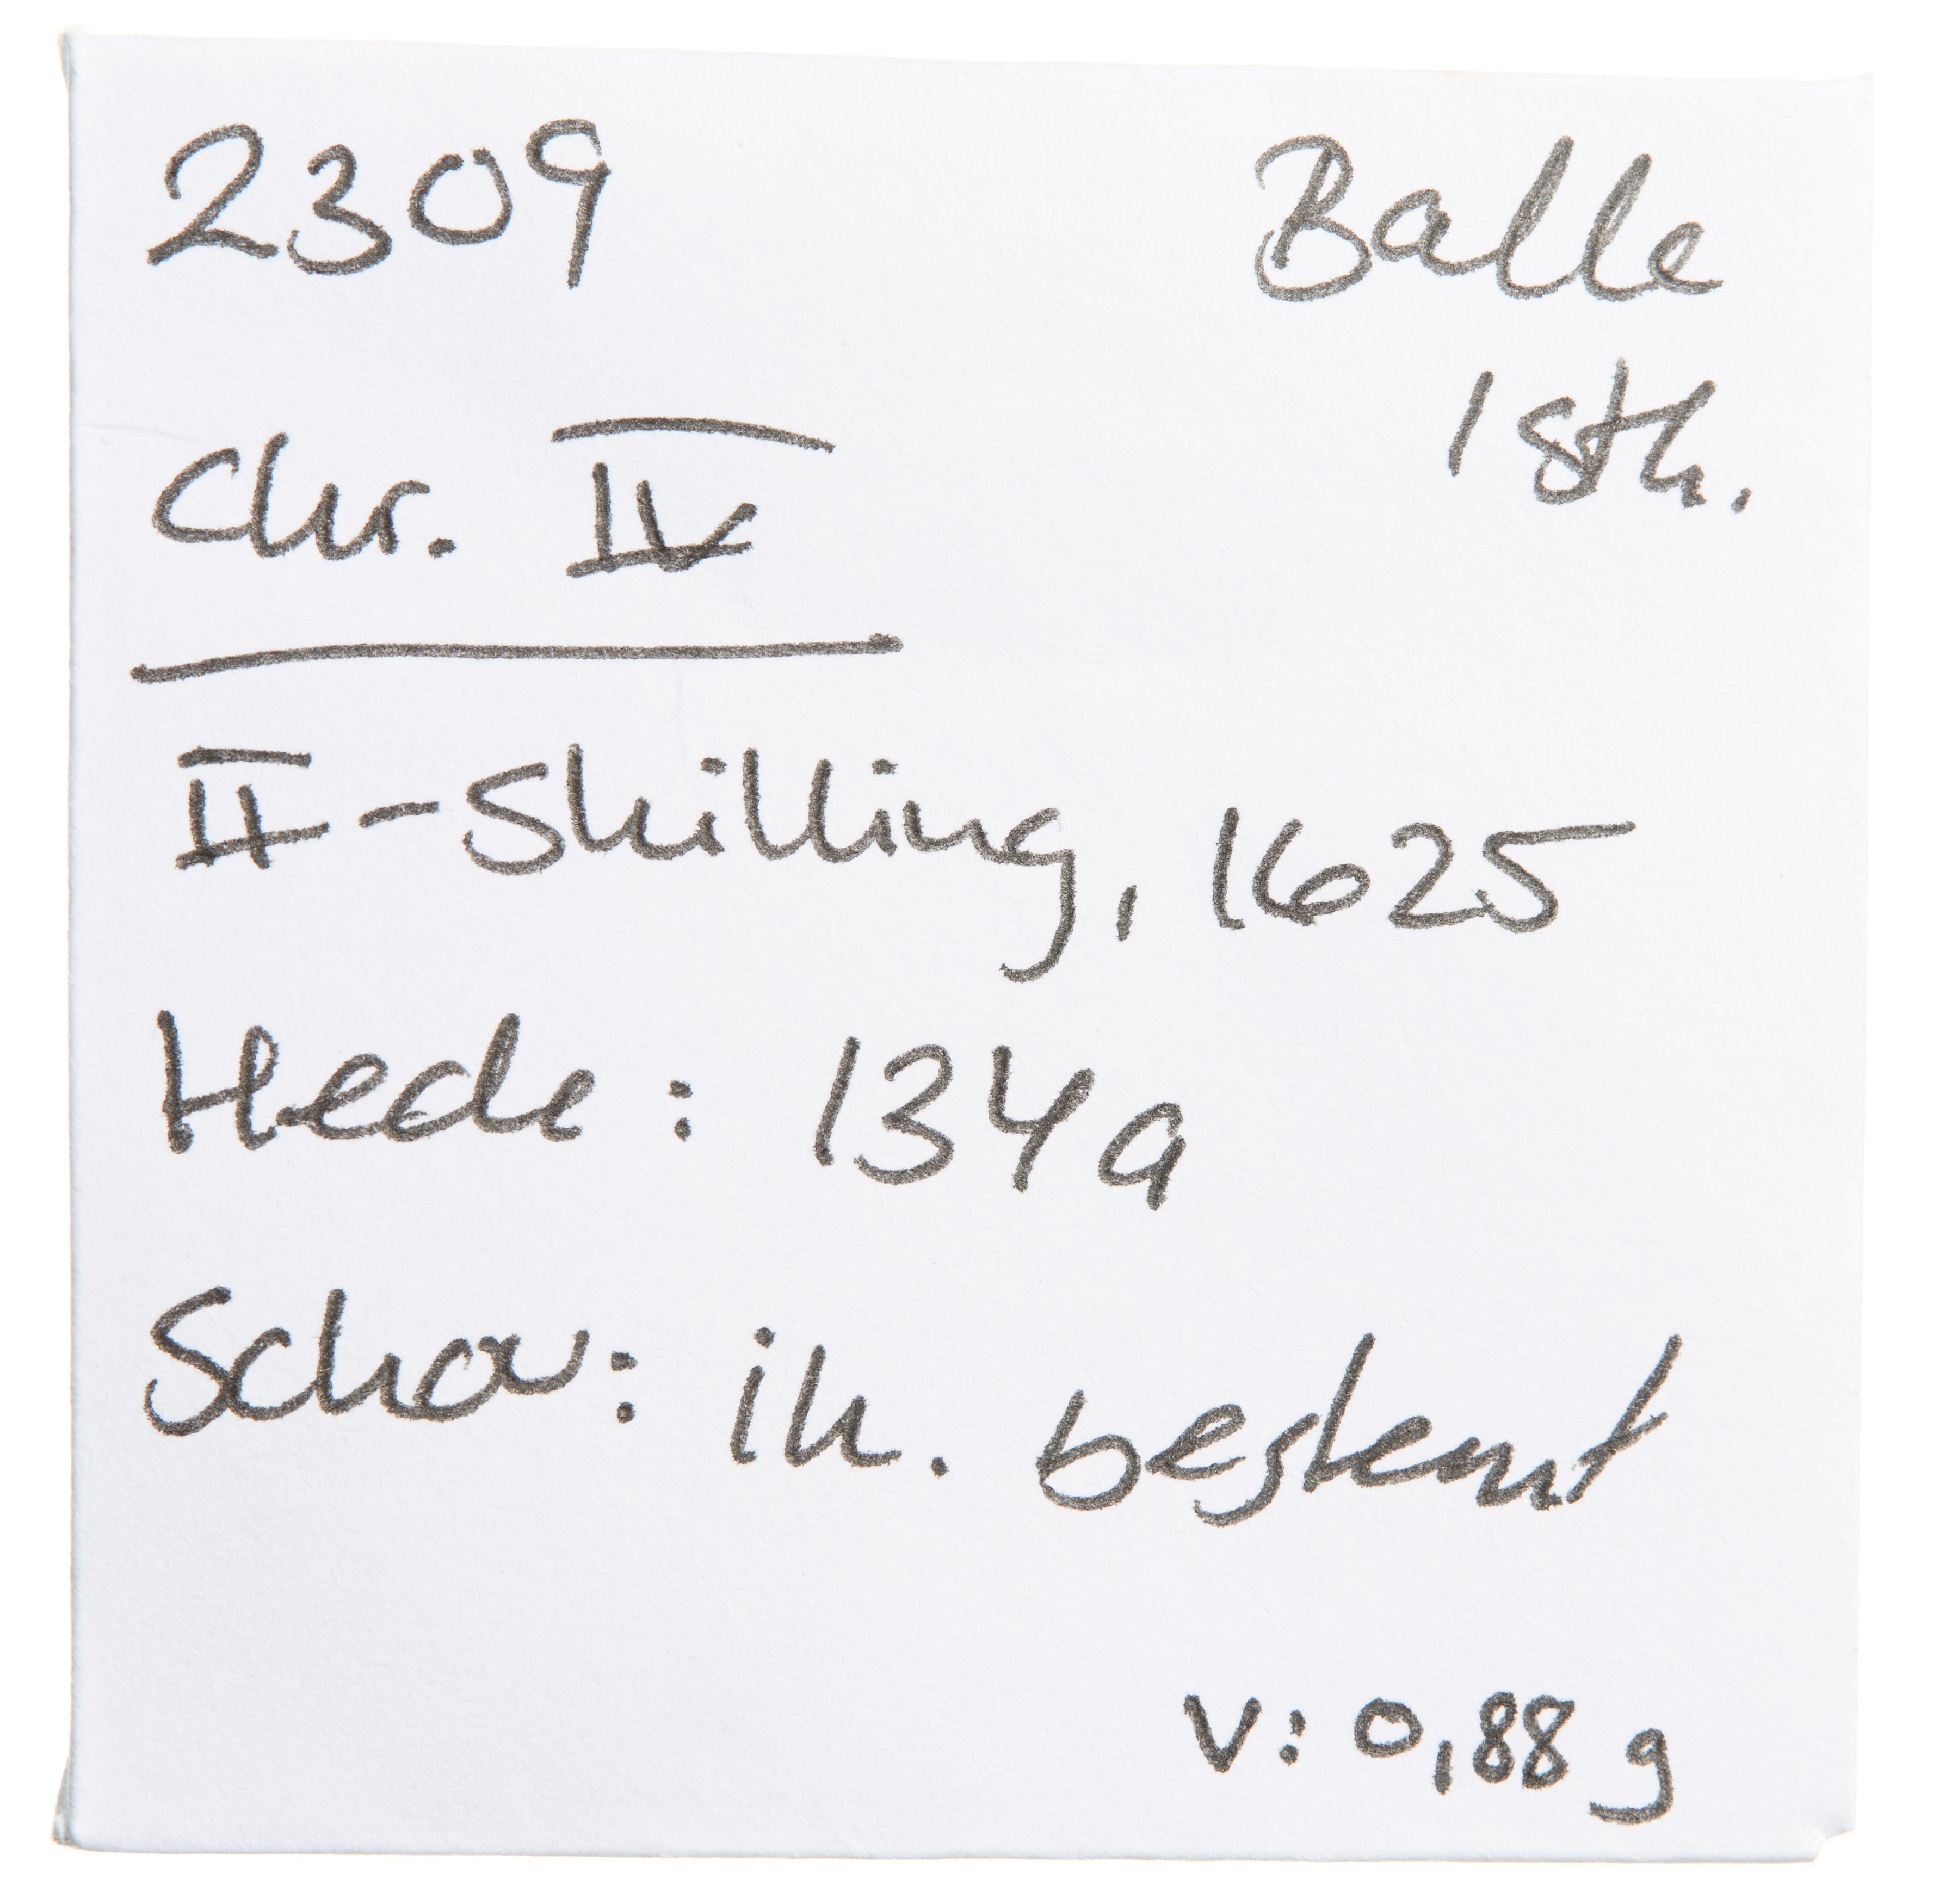 2309
Balle
1 stk.
Chr. IV
II-Skilling, 1625
Hede: 134a
Schou: ik. bestemt
V: 0,88 g